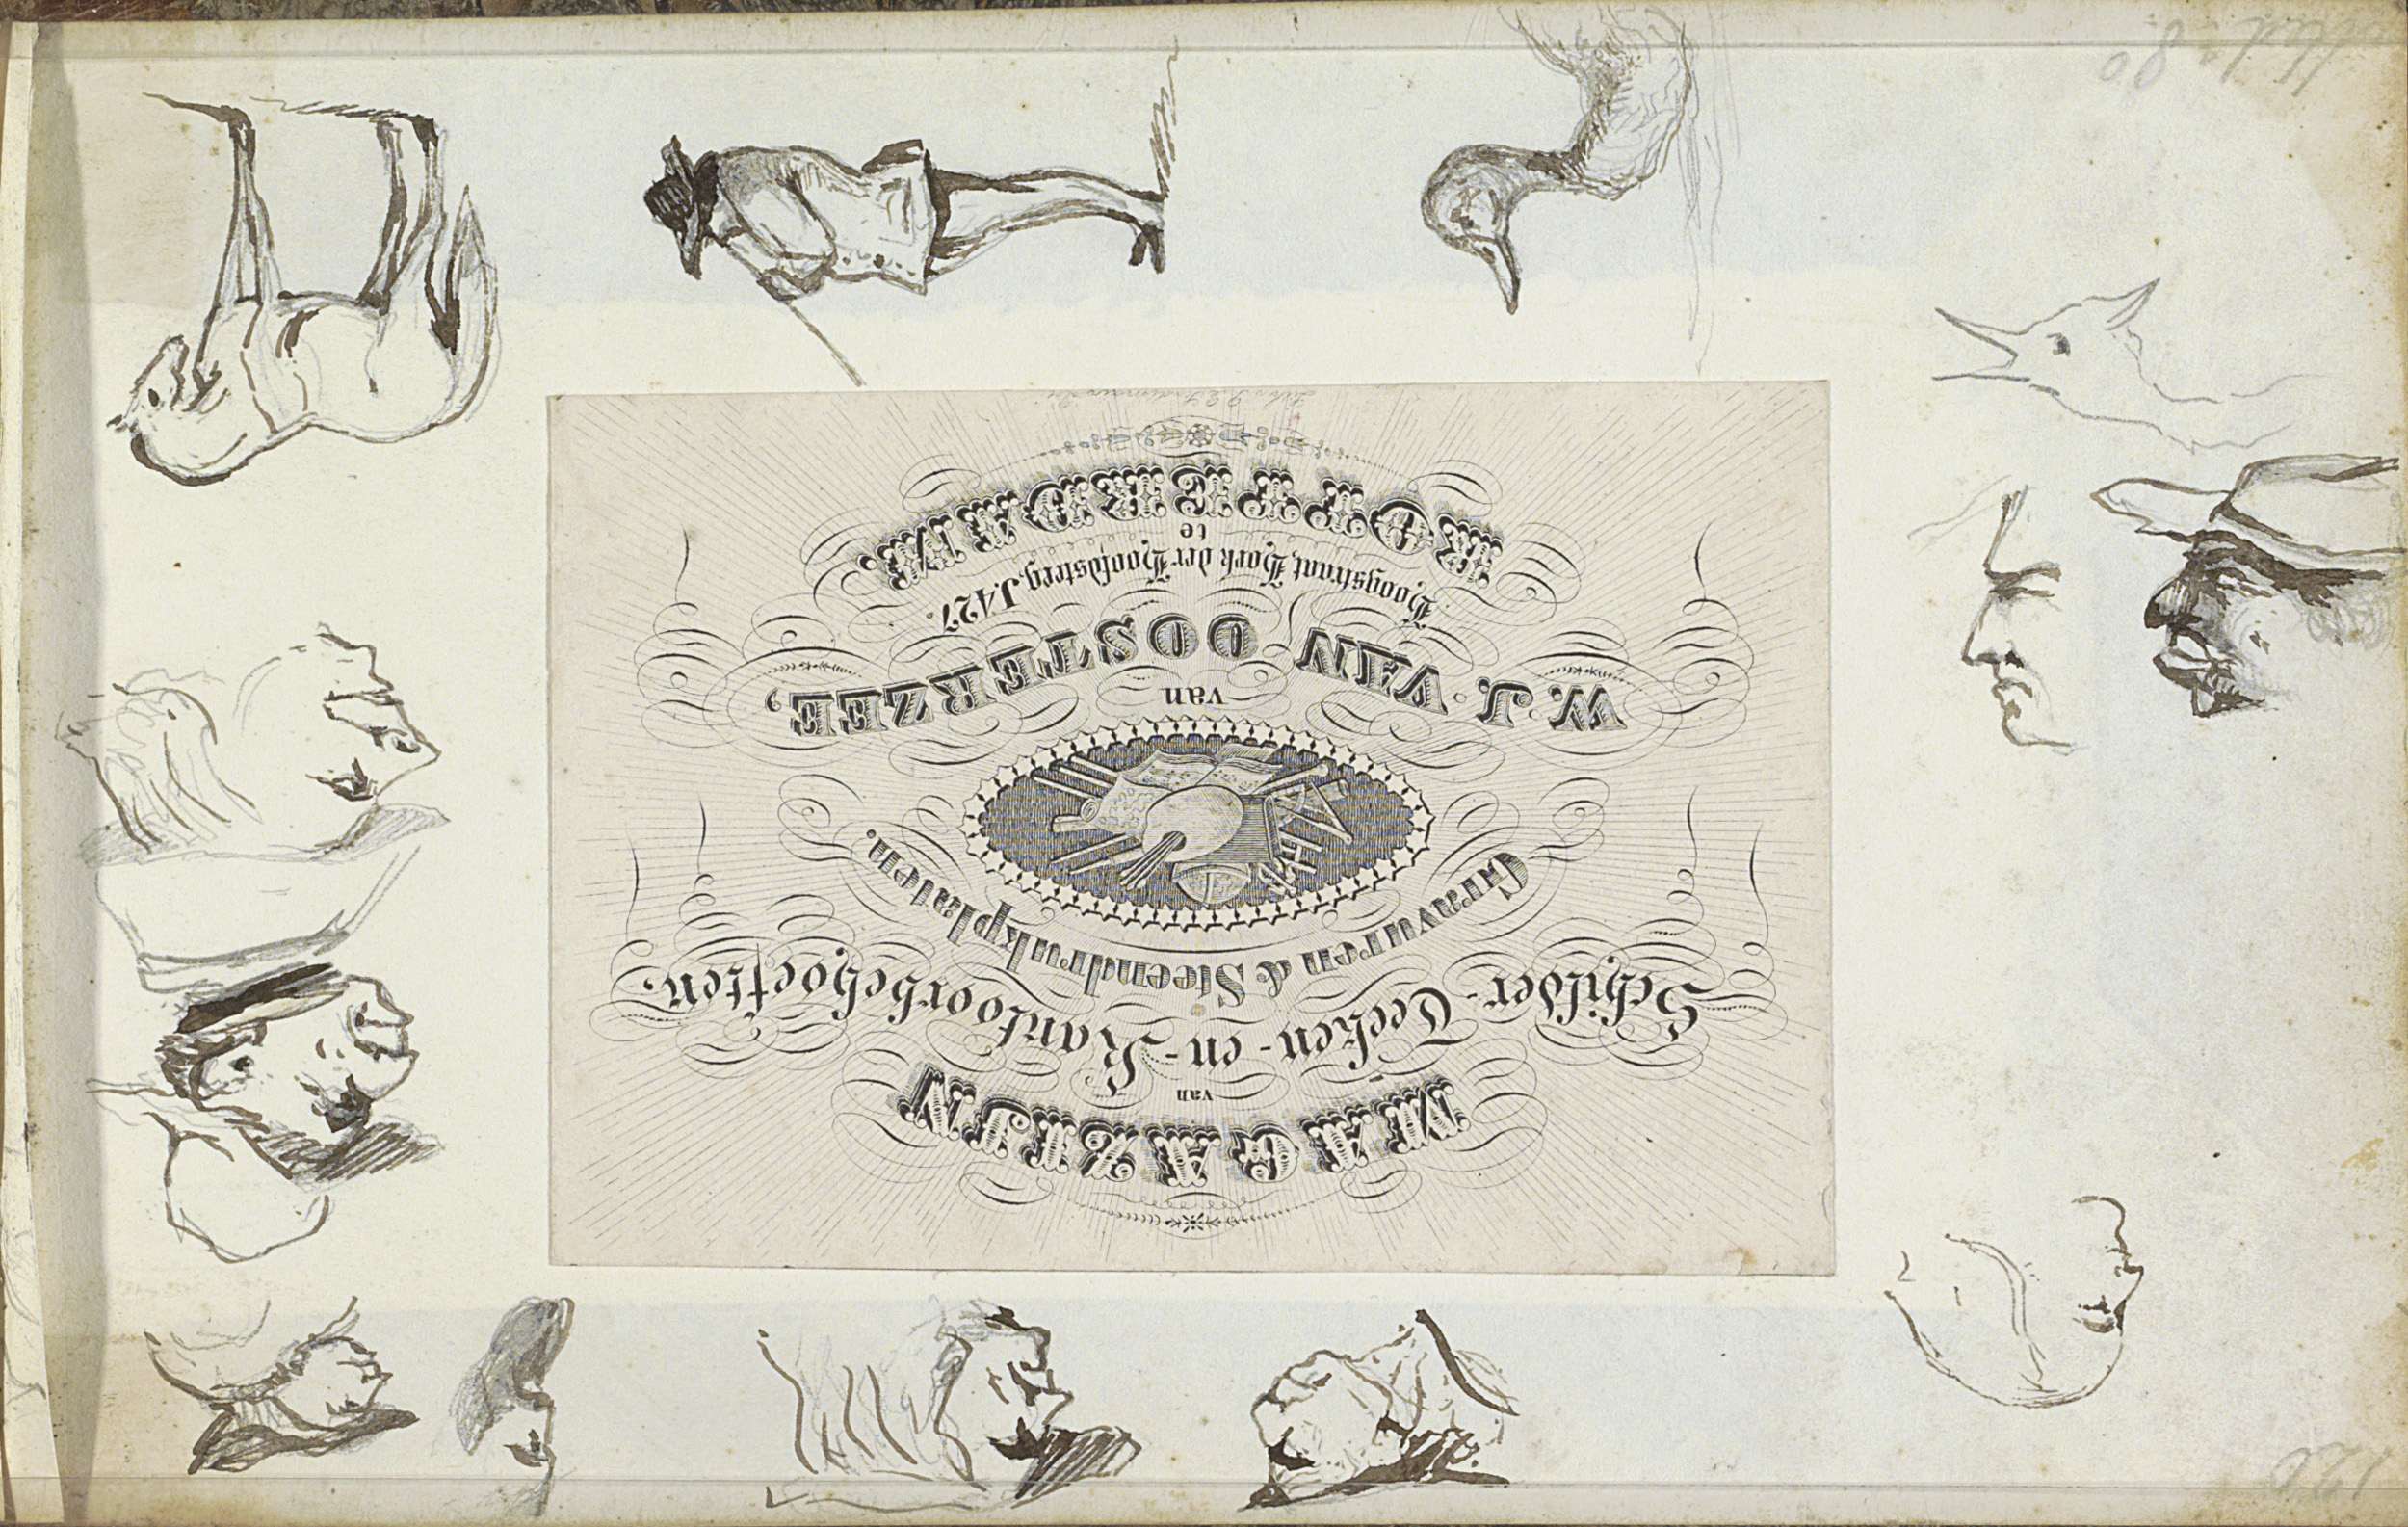 MAGAZIJN
van
Schilder-Teeken-en-Kantoorbehoeften.
Gravuren & Steendrukplaten.
van
W. J. VAN OOSTERZEE,
Hoogstraat, Hoek der Hoofdsteeg, J. 427.
te
ROTTERDAM.
120